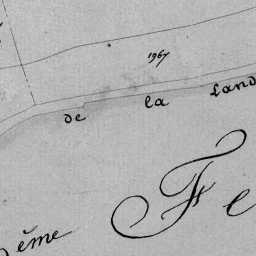 1967
de la Land
Fe
ème